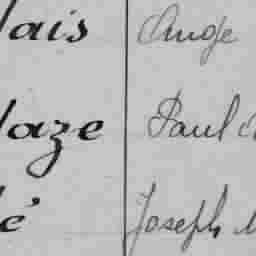 lais Ange
laze Paul
lé Joseph